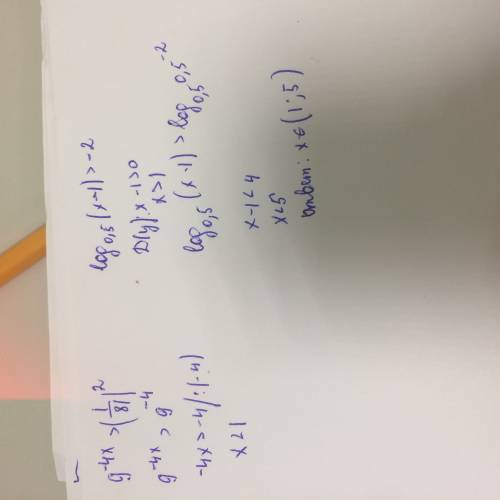 9^-4x > (1/81)^2
9^-4x > 9^-4
-4x > -4 /:(-4)
x < 1
log0,5 (x-1) > -2
D(y): x-1>0
x>1
log0,5 (x-1) > log0,5 0,5^-2
x-1<4
x<5
ответ: x∈(1;5)